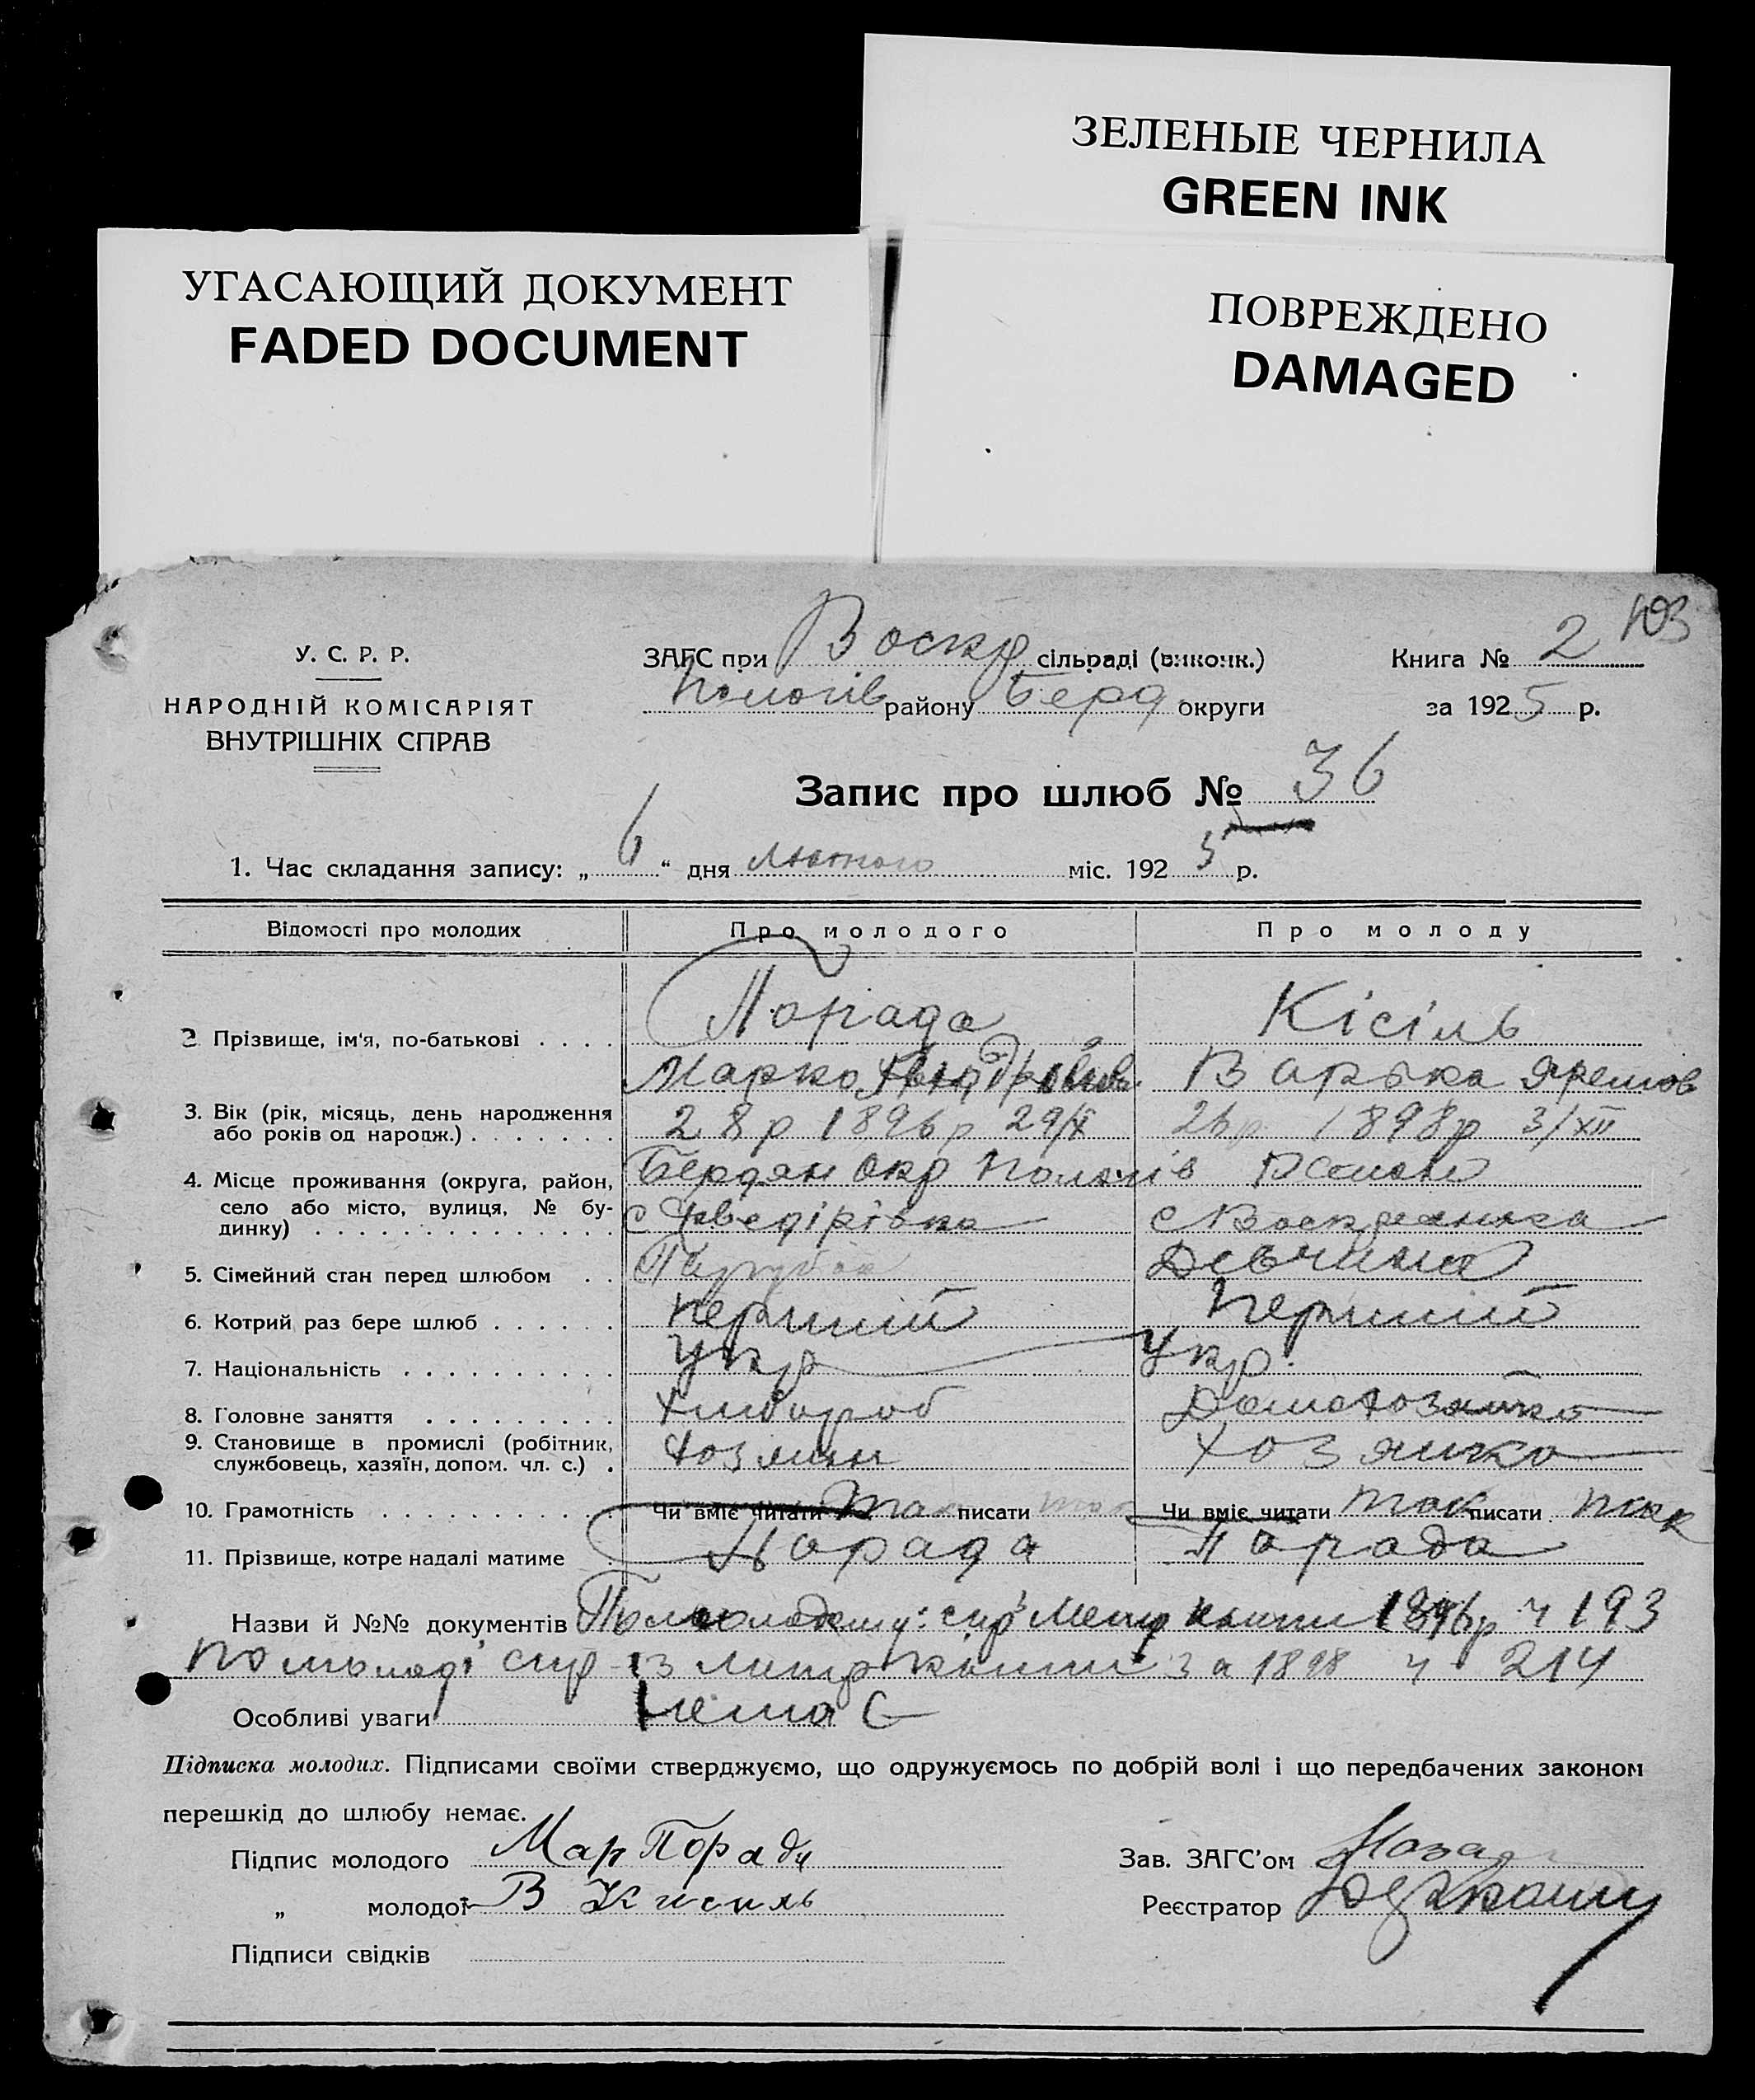 ЗЕЛЕНЫЕ ЧЕРНИЛА
GREEN INK
УГАСАЮЩИЙ ДОКУМЕНТ
FADED DOCUMENT
ПОВРЕЖДЕНО
DAMAGED
103
У. С. Р. Р.
НАРОДНІЙ КОМІСАРІЯТ
ВНУТРІШНІХ СПРАВ
ЗАГС при Воскр сільраді (виконк.)
Пологів району Берд округи
Книга № 2
за 1925 р.
Запис про шлюб № 36
1. Час складання запису: „6“ дня Лютого міс. 1925 р.
Відомості про молодих Про молодого Про молоду
2 Прізвище, ім'я, по-батькові . . . . Порада Кісіль
Марко Варька Яремов
3. Вік (рік, місяць, день народження або років од народж.) . . . . . . . 28р 1896р 29/X 26р 1898р 3/XII
4. Місце проживання (округа, район, село або місто, вулиця, № будинку) . . . . . . . . . . . . . . Бердян окр Пологів
с Федірівка с Воскресенка
5. Сімейний стан перед шлюбом . . Парубок Дівчина
6. Котрий раз бере шлюб . . . . . . Перший Перший
7. Національність . . . . . . . . . . Укр Укр.
8. Головне заняття . . . . . . . . . Хлібороб Домохозяйка
9. Становище в промислі (робітник, службовець, хазяїн, допом. чл. с.) . Хозяин Хозяйка
10. Грамотність . . . . . . . . . . . Чи вміє читати так писати так Чи вміє читати так писати так
11. Прізвище, котре надалі матиме Порада Порада
Назви й №№ документів По молодому: спр Метр книги 1896р ч 193
По молоді спр із метр книги за 1898 ч 214
Особливі уваги Немає
Підписка молодих. Підписами своїми стверджуємо, що одружуємось по добрій волі і що передбачених законом
перешкід до шлюбу немає.
Підпис молодого Мар Порада
„ молодої В Кисиль
Підписи свідків
Зав. ЗАГС'ом
Реєстратор